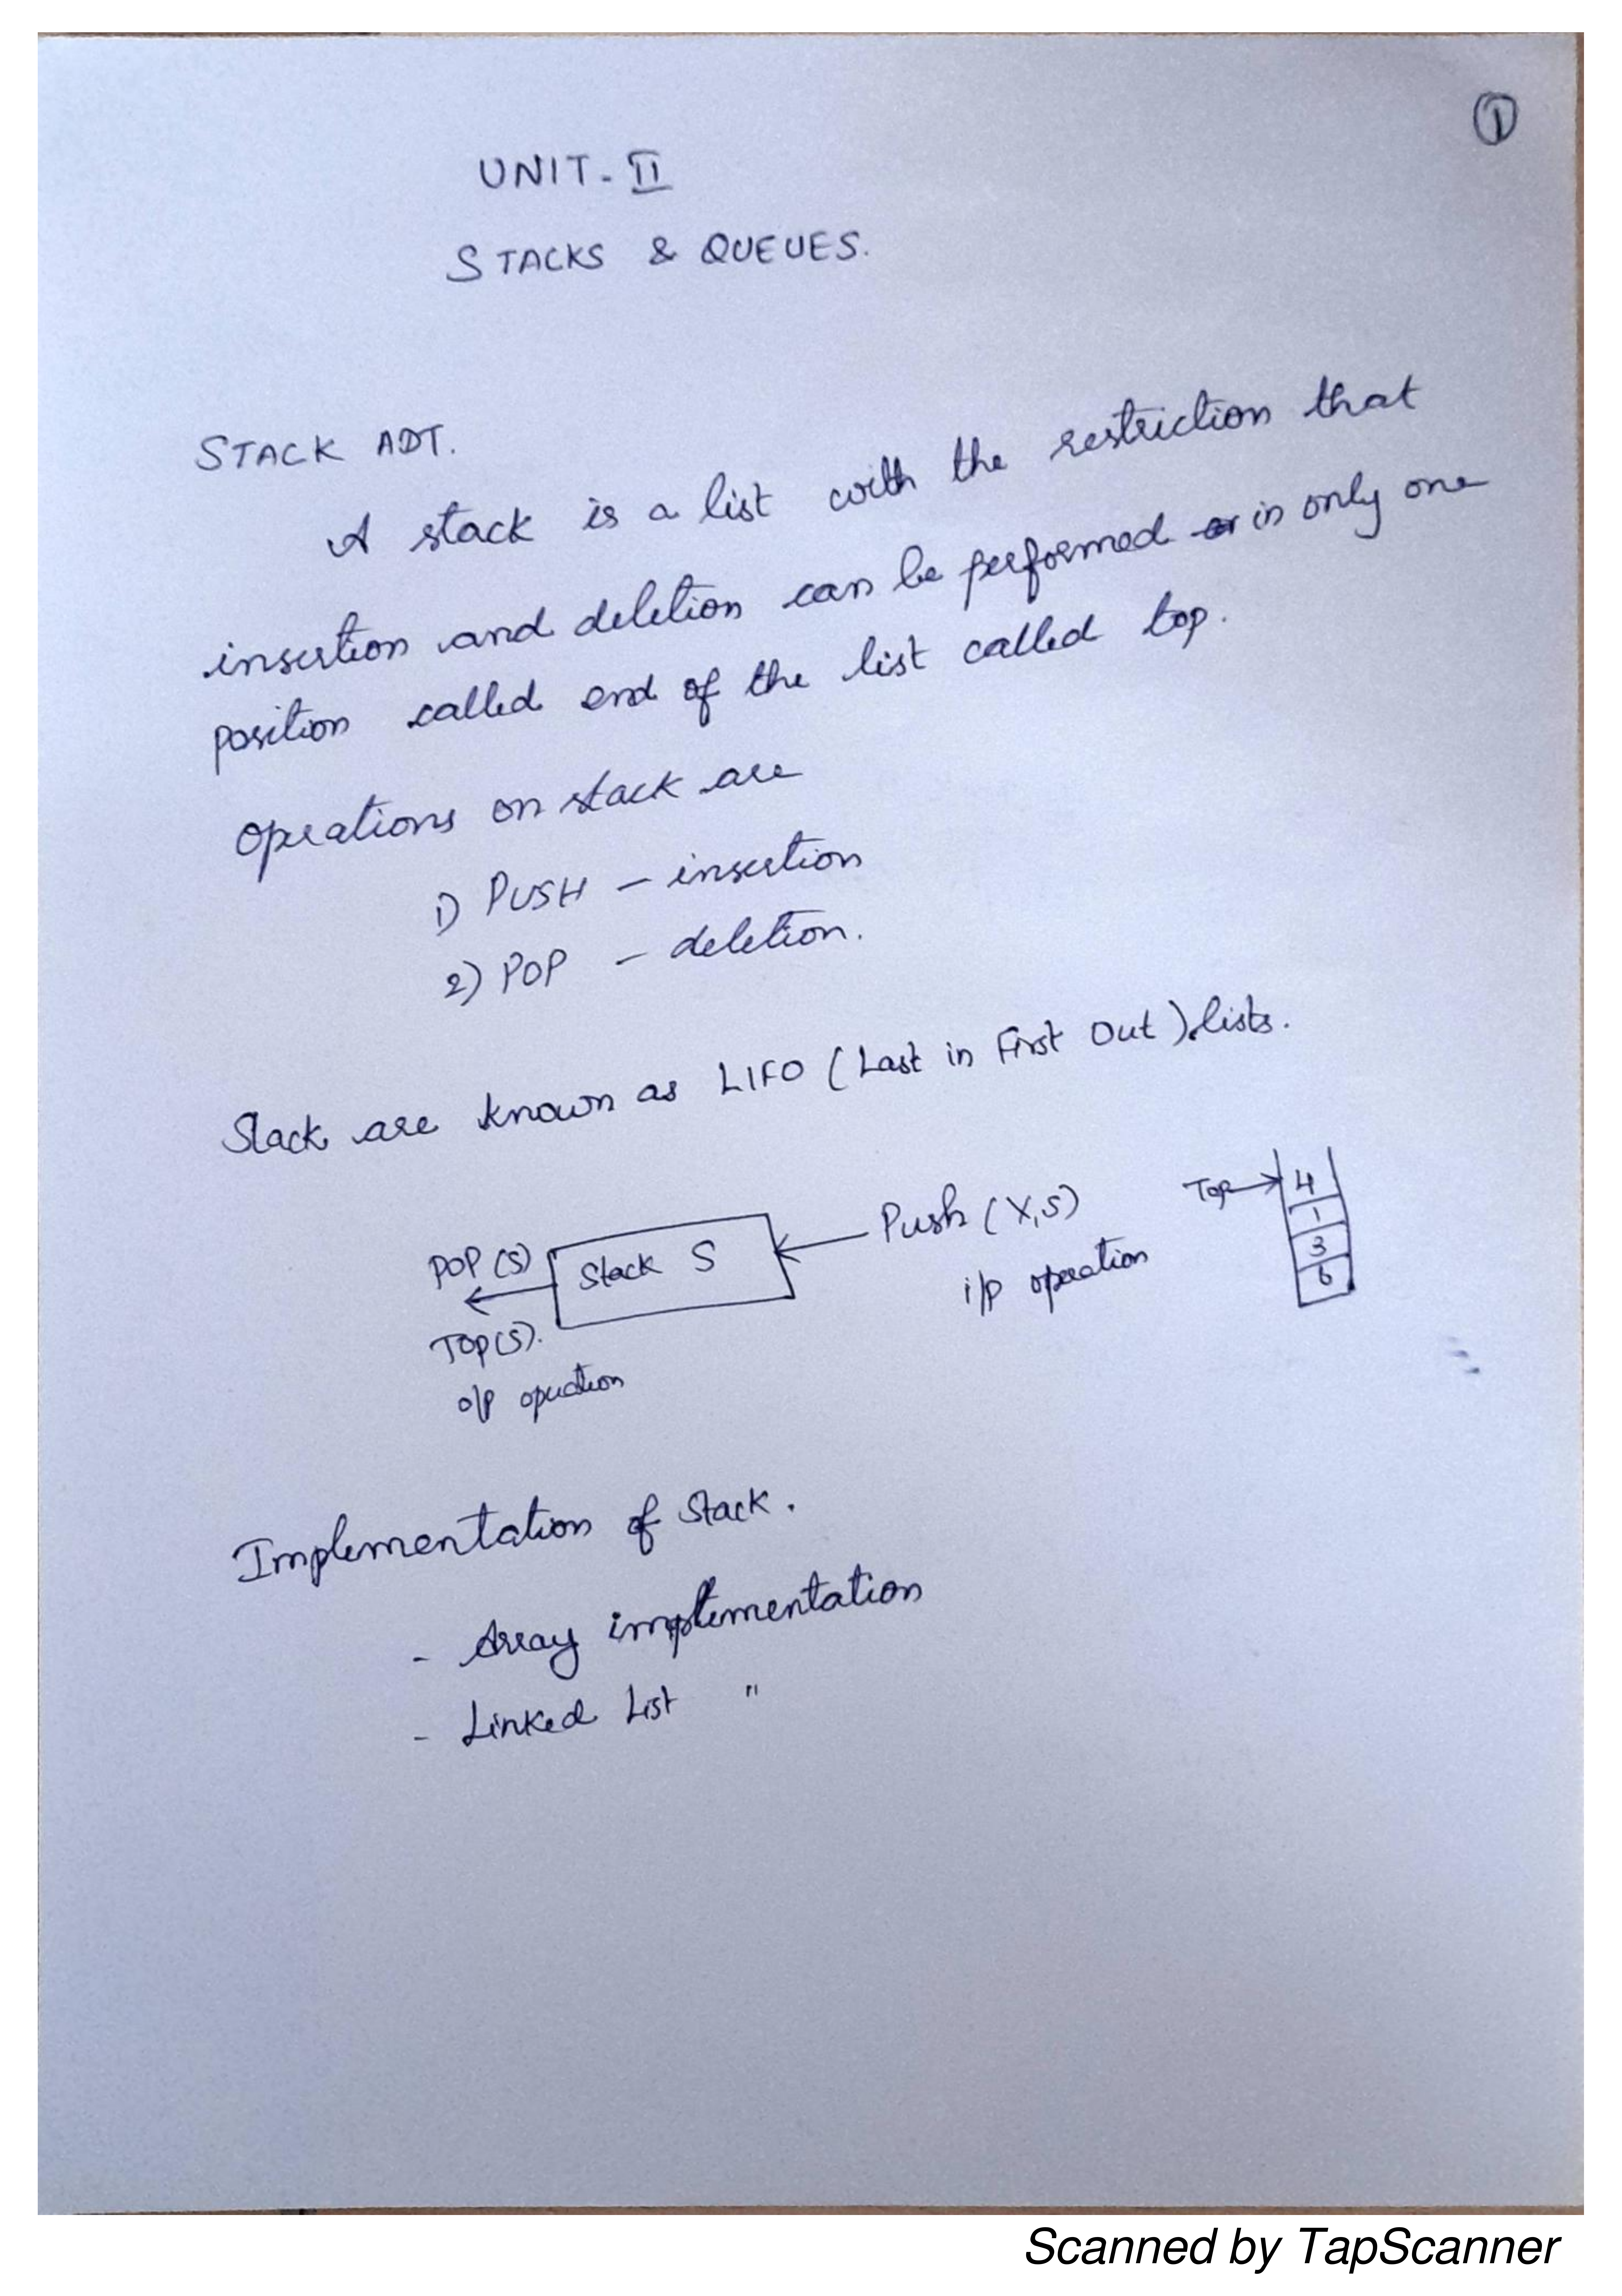 1
UNIT - II
STACKS & QUEUES.
STACK ADT.
A stack is a list with the restriction that
insertion and deletion can be performed in only one
position called end of the list called top.
Operations on stack are
1) PUSH - insertion
2) POP - deletion.
Stack are known as LIFO (Last in First Out) lists.
POP (S)
Stack S
Push (X,S)
Top
4
1
3
6
TOP(S).
i/p operation
o/p operation
Implementation of Stack.
- Array implementation
- Linked List "
Scanned by TapScanner